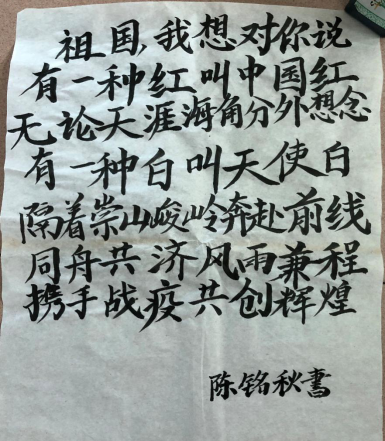 祖国,我想对你说
有一种红叫中国红
无论天涯海角分外想念
有一种白叫天使白
隔着崇山峻岭奔赴前线
同舟共济风雨兼程
携手战疫共创辉煌
陈铭秋書